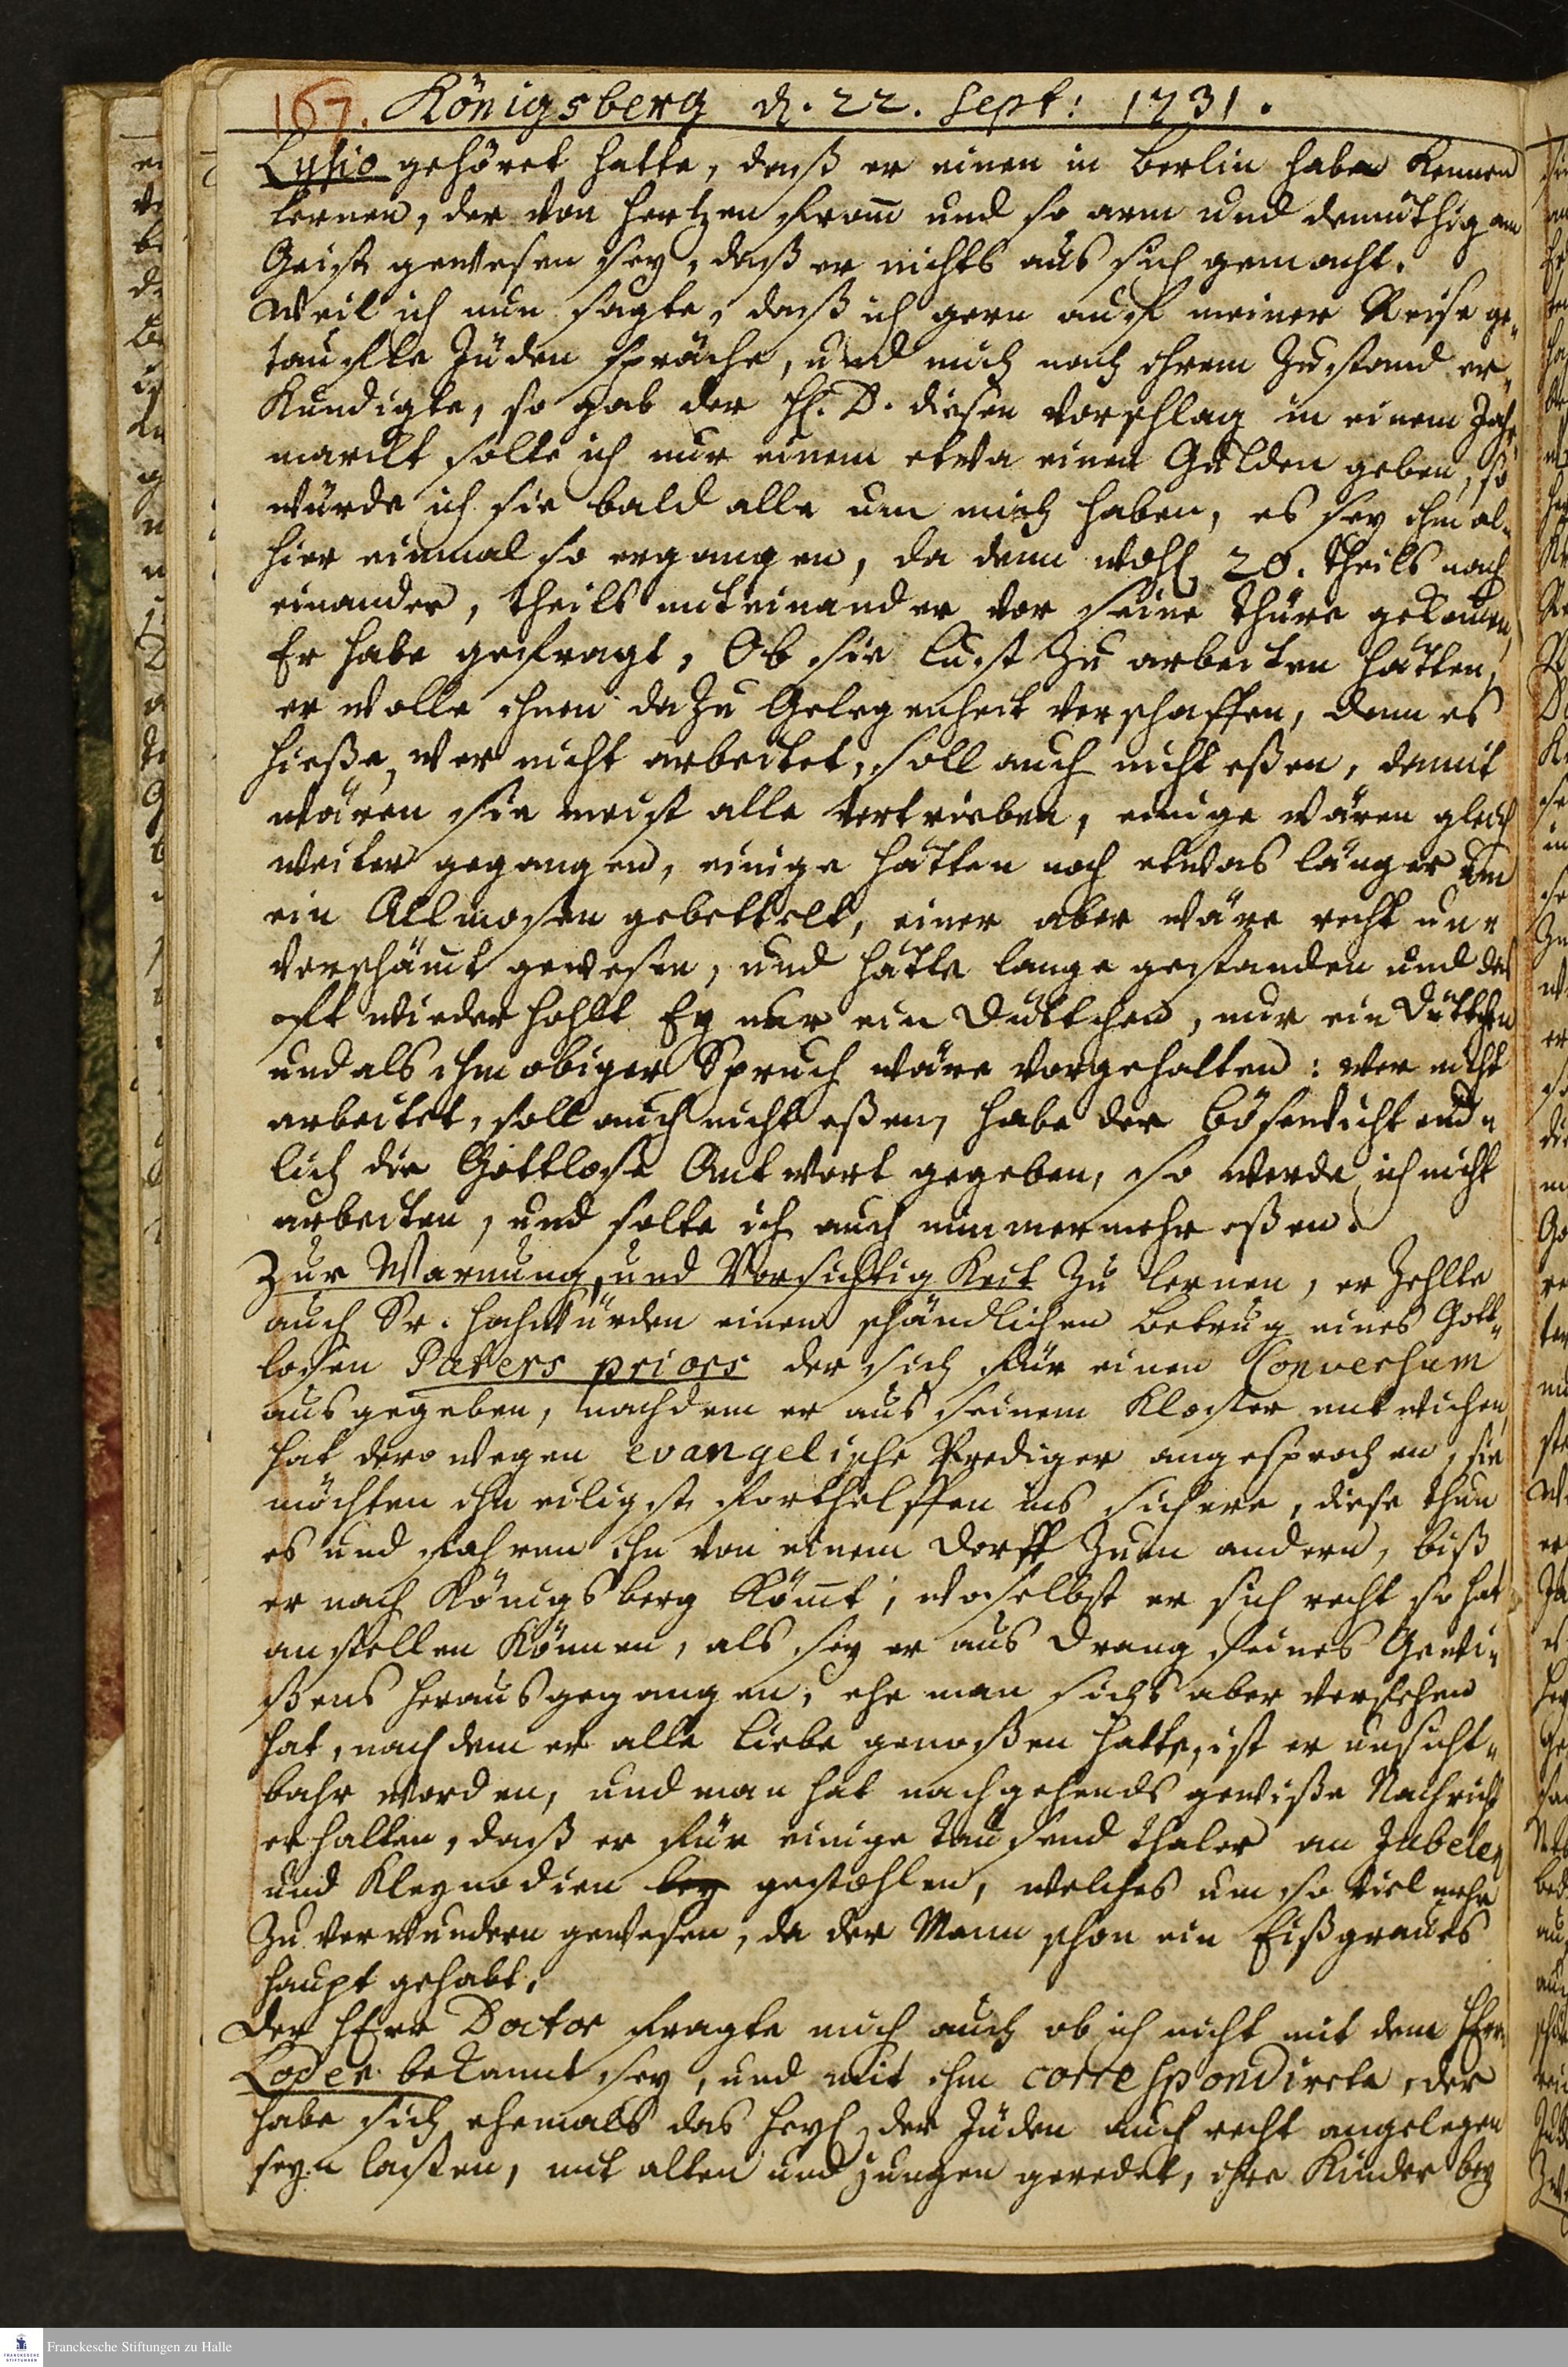 167. Königsberg d. 22. Sept: 1731.
Lysio gehöret hatte, daß er einen in Berlin habe kennen
lernen, der von Hertzen from und so arm und demüthig am
Geist gewesen sey, daß er nichts aus sich gemacht.
Weil ich nun sagte, daß ich gern auf meiner Reise ge-
tauffte Jüden spräche, und mich nach ihrem Zustand er-
kundigte, so gab der H. D. diesen Vorschlag in einem Jahr-
marckt solte ich nur einem etwa einen Gulden geben, so
würde ich sie bald alle um mich haben, es sey ihm al-
hier einmal so ergangen, da denn wohl 20. theils nach
einander, theils miteinander vor seine Thüre gekomen,
Er habe gefragt, Ob sie Lust zu arbeiten hätten,
er wolle ihnen dazu Gelegenheit verschaffen, denn es
hieße, wer nicht arbeitet, soll auch nicht eßen, damit
wären sie meist alle vertrieben, einige wären gleich
weiter gegangen, einige hätten noch etwas länger um
ein Allmosen gebettelt, einer aber wäre recht un-
verschämt gewesen, und hätte lange gestanden und das
oft wiederhohlt Ey nur ein Düttchen, nur ein Düttchen
und als ihm obiger Spruch wäre vorgehalten: wer nicht
arbeitet, soll auch nicht eßen, habe der Bösewicht end-
lich die Gottlose Antwort gegeben, so werde ich nicht
arbeiten, und solte ich auch nimmermehr eßen.
Zur Warnung, und Vorsichtigkeit zu lernen, erzehlte
auch Sr. Hochwürden einen schändlichen Betrug eines Gott-
losen Paters priors der sich für einen Conversum
ausgegeben, nachdem er aus seinem Kloster entwichen,
hat derowegen evangelische Prediger angesprochen, sie
möchten ihn eiligst forthelffen ins sichere, diese thun
es und fahren ihn von einem Dorff zum andern, biß
er nach Königsberg kömt, woselbst er sich recht so hat
anstellen können, als sey er aus Drang seines Gewi-
ßens herausgegangen, ehe man sichs aber versehen
hat, nach dem er alle Liebe genoßen hatte, ist er unsicht-
bahr worden, und man hat nachgehends gewiße Nachricht
erhalten, daß er für einige tausend Thaler an Jubelen
und Kleynodien bey gestohlen, welches um so viel mehr
zu verwundern gewesen, da der Mann schon ein Eißgraues
Haupt gehabt.
Der HErr Doctor fragte mich auch ob ich nicht mit dem HErrn
Loder bekannt sey, und mit ihm correspondirete, der
habe sich ehemals das Heyl der Jüden auch recht angelegen
seyn laßen, mit alten und jungen geredet, ihre Kinder bey
Franckesche Stiftungen zu Halle